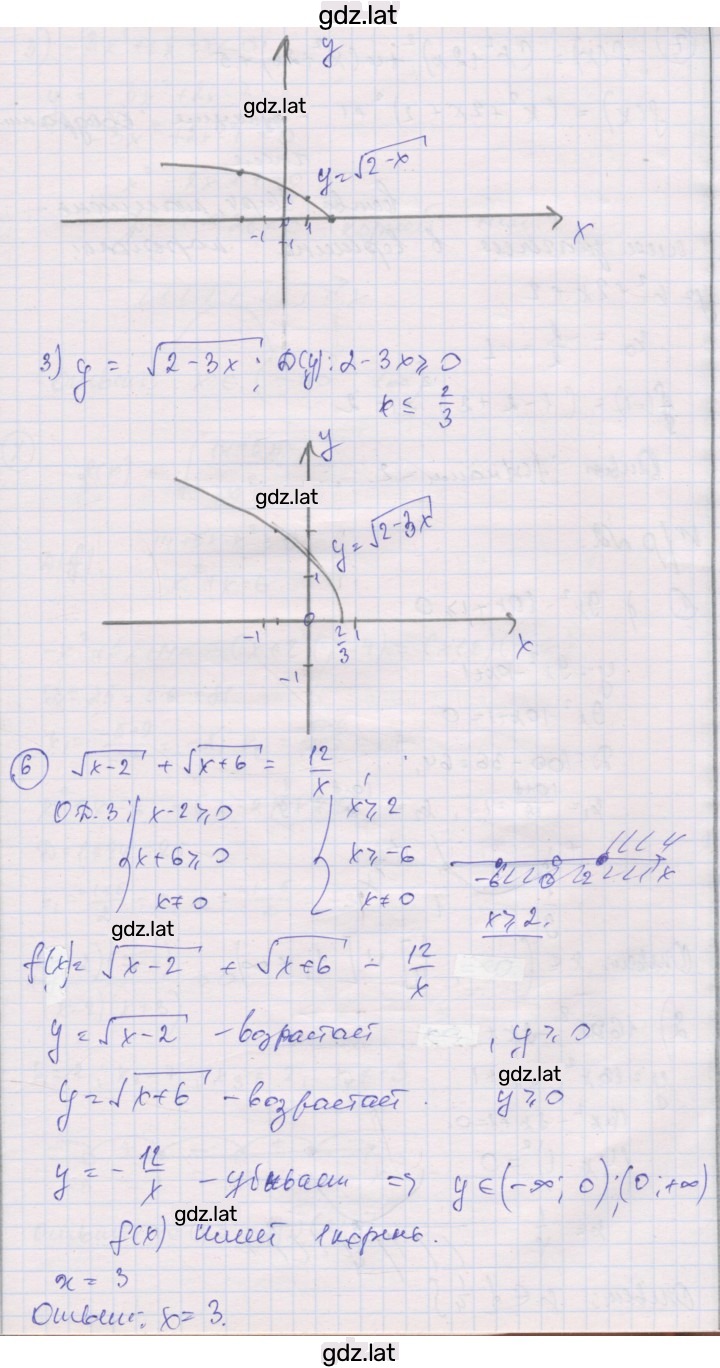 gdz.lat
y
gdz.lat
y = √(2-x)
1
-1
1
-1
x
3) y = √(2-3x); D(y): 2-3x ≥ 0
x ≤ 2/3
y
gdz.lat
y = √(2-3x)
1
-1
0
2/3
1
x
-1
6 √(x-2) + √(x+6) = 12/x;
О.Д.З: { x-2 ≥ 0 { x ≥ 2
x+6 ≥ 0 x ≥ -6
x ≠ 0 x ≠ 0
-6 0 2 x
x ≥ 2.
gdz.lat
f(x) = √(x-2) + √(x+6) - 12/x
y = √(x-2) - возрастает, y ≥ 0
gdz.lat
y = √(x+6) - возрастает. y ≥ 0
y = -12/x - убывает => y ∈ (-∞; 0); (0; +∞)
gdz.lat
f(x) имеет 1 корень.
x = 3
Ответ: x = 3.
gdz.lat